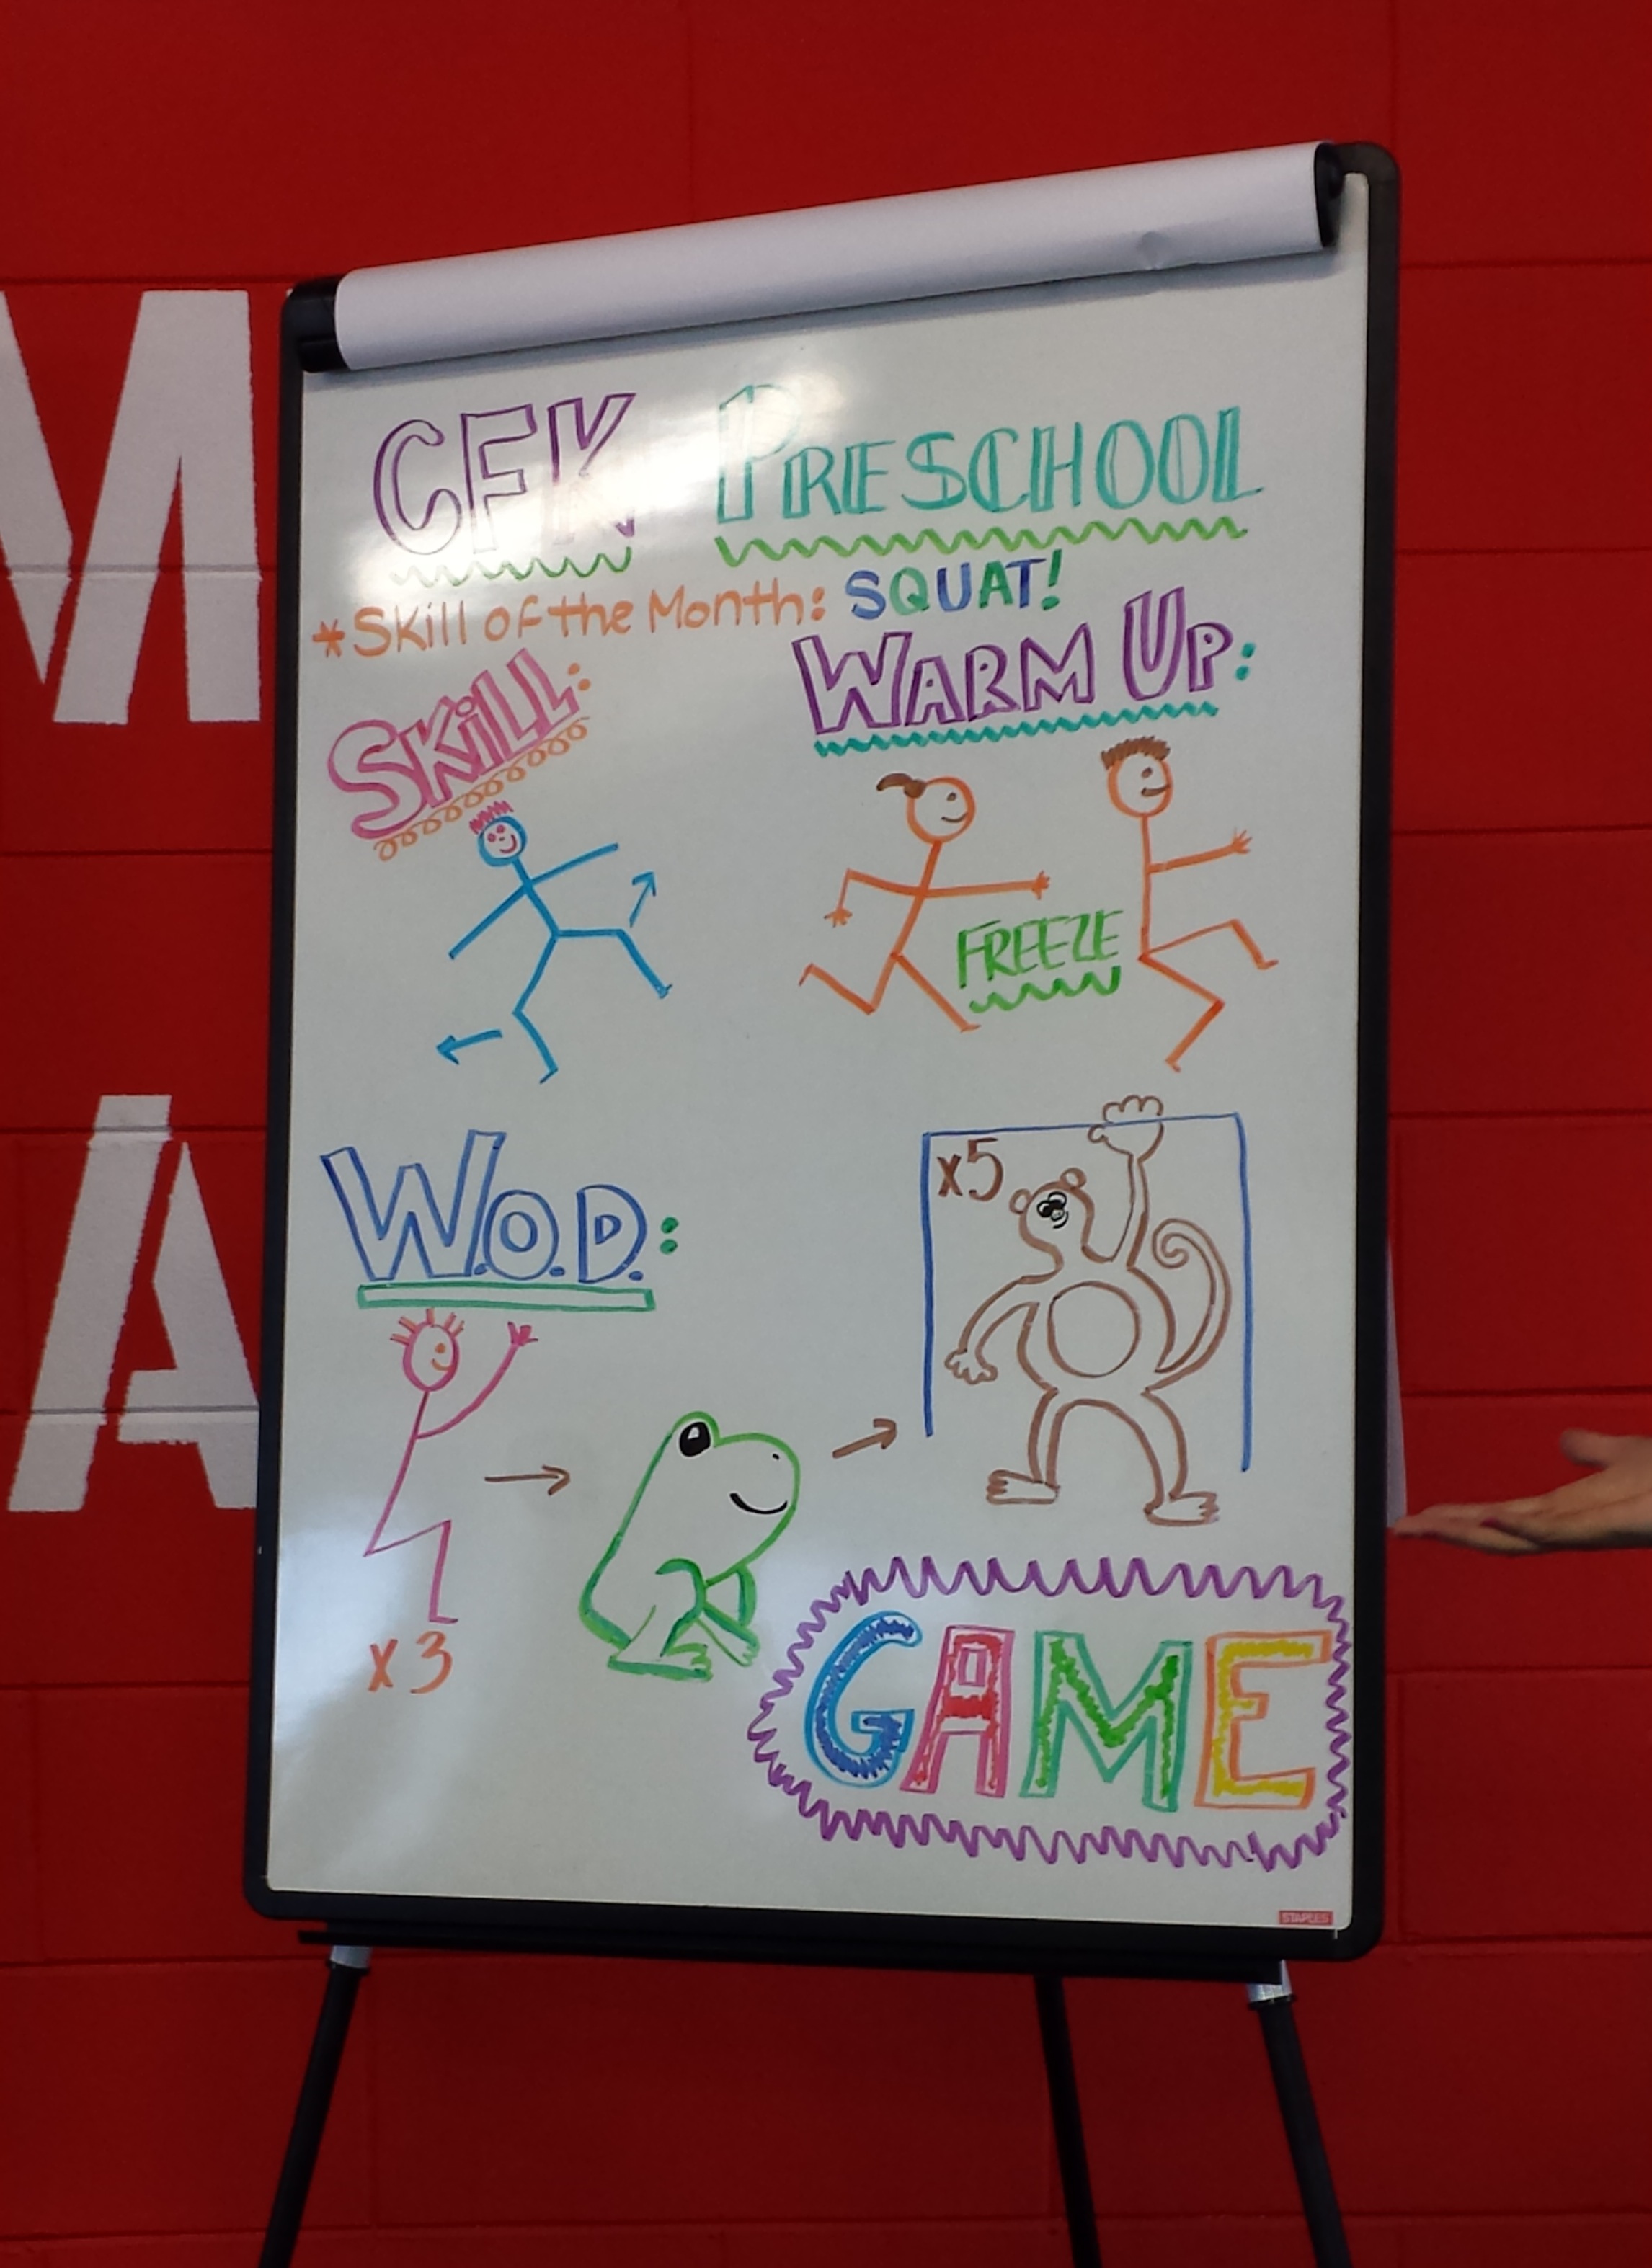 CFK PRESCHOOL
*Skill of the Month: SQUAT!
SKiLL:
WARM UP:
FREEZE
W.O.D.:
x5
x3
GAME
STAPLES
M
A